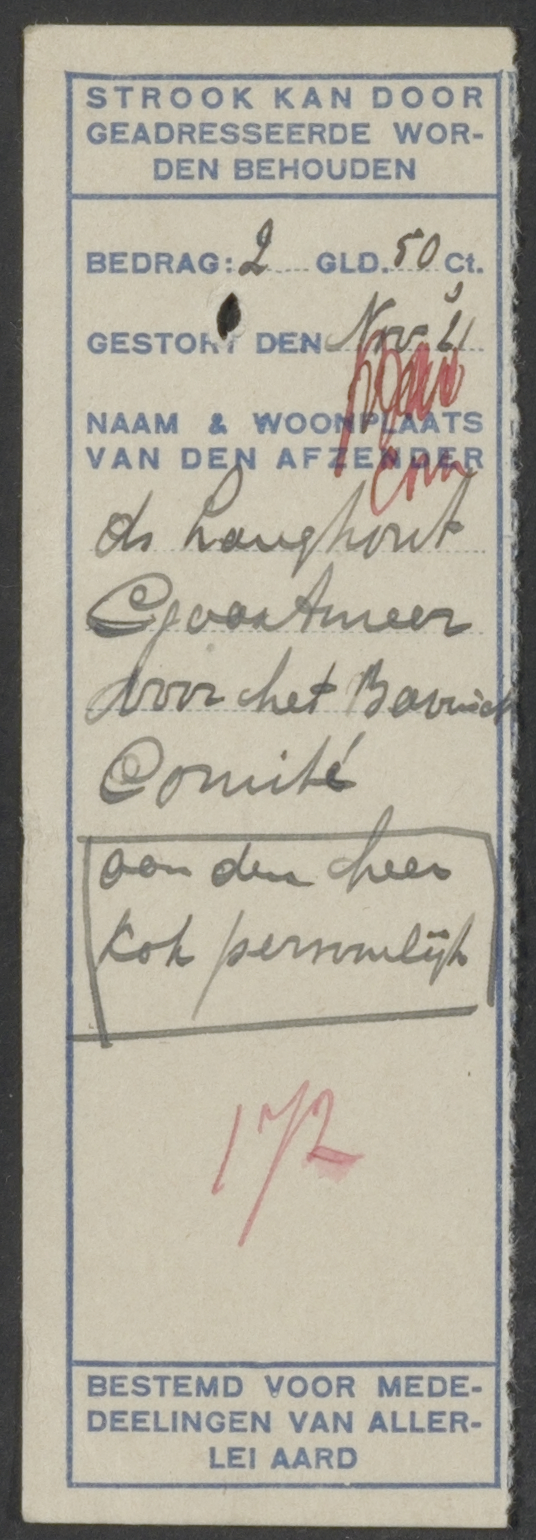 STROOK KAN DOOR
GEADRESSEERDE WOR-
DEN BEHOUDEN
BEDRAG: 2 GLD. 50 Ct.
GESTORT DEN Nov
NAAM & WOONPLAATS
VAN DEN AFZENDER
ds Langhout
voor het Bavinck
Comité
aan den heer
Kok persoonlijk
172
BESTEMD VOOR MEDE-
DEELINGEN VAN ALLER-
LEI AARD